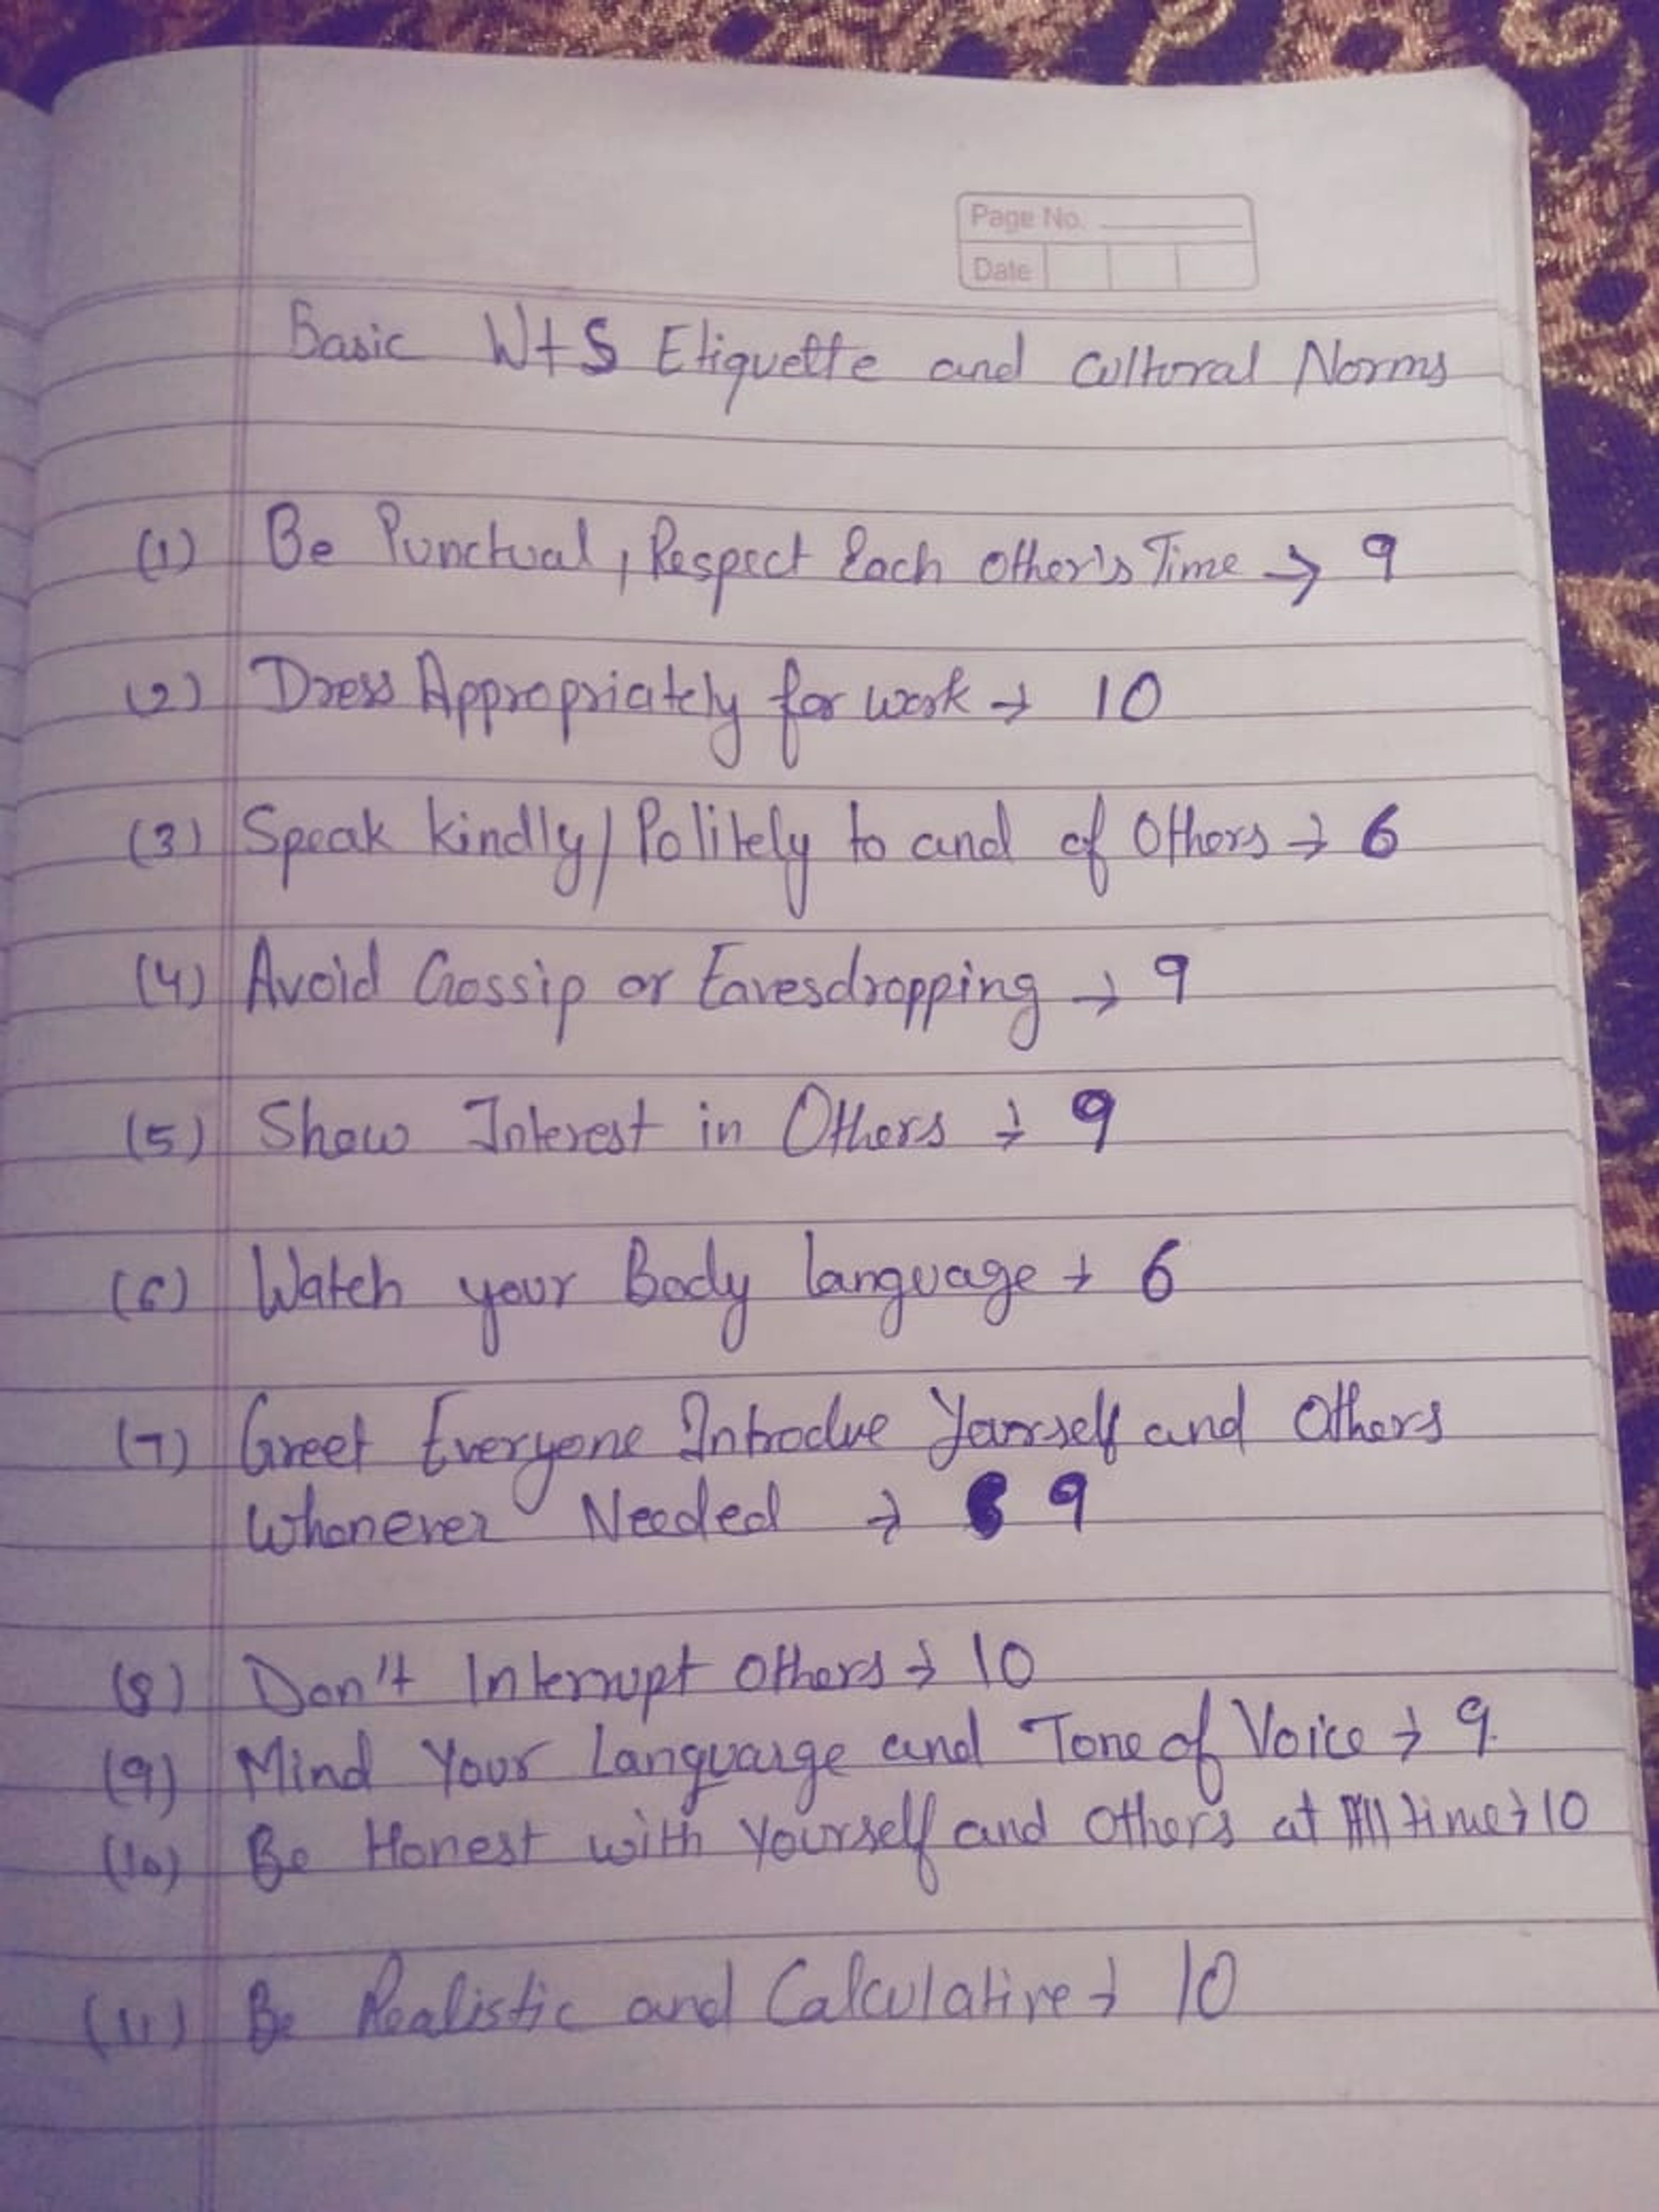 Page No.
Date
Basic WtS Etiquette and Cultural Norms
(1) Be Punctual, Respect Each other's Time → 9
(2) Dress Appropriately for work → 10
(3) Speak kindly/Politely to and of Others → 6
(4) Avoid Gossip or Eavesdropping → 9
(5) Show Interest in Others → 9
(6) Watch your Body language → 6
(7) Greet Everyone Introdue Yourself and Others
Whenever Needed → 9
(8) Don't Interrupt Others → 10
(9) Mind Your Languarge and Tone of Voice → 9.
(10) Be Honest with Yourself and Others at All time → 10
(11) Be Realistic and Calculative → 10